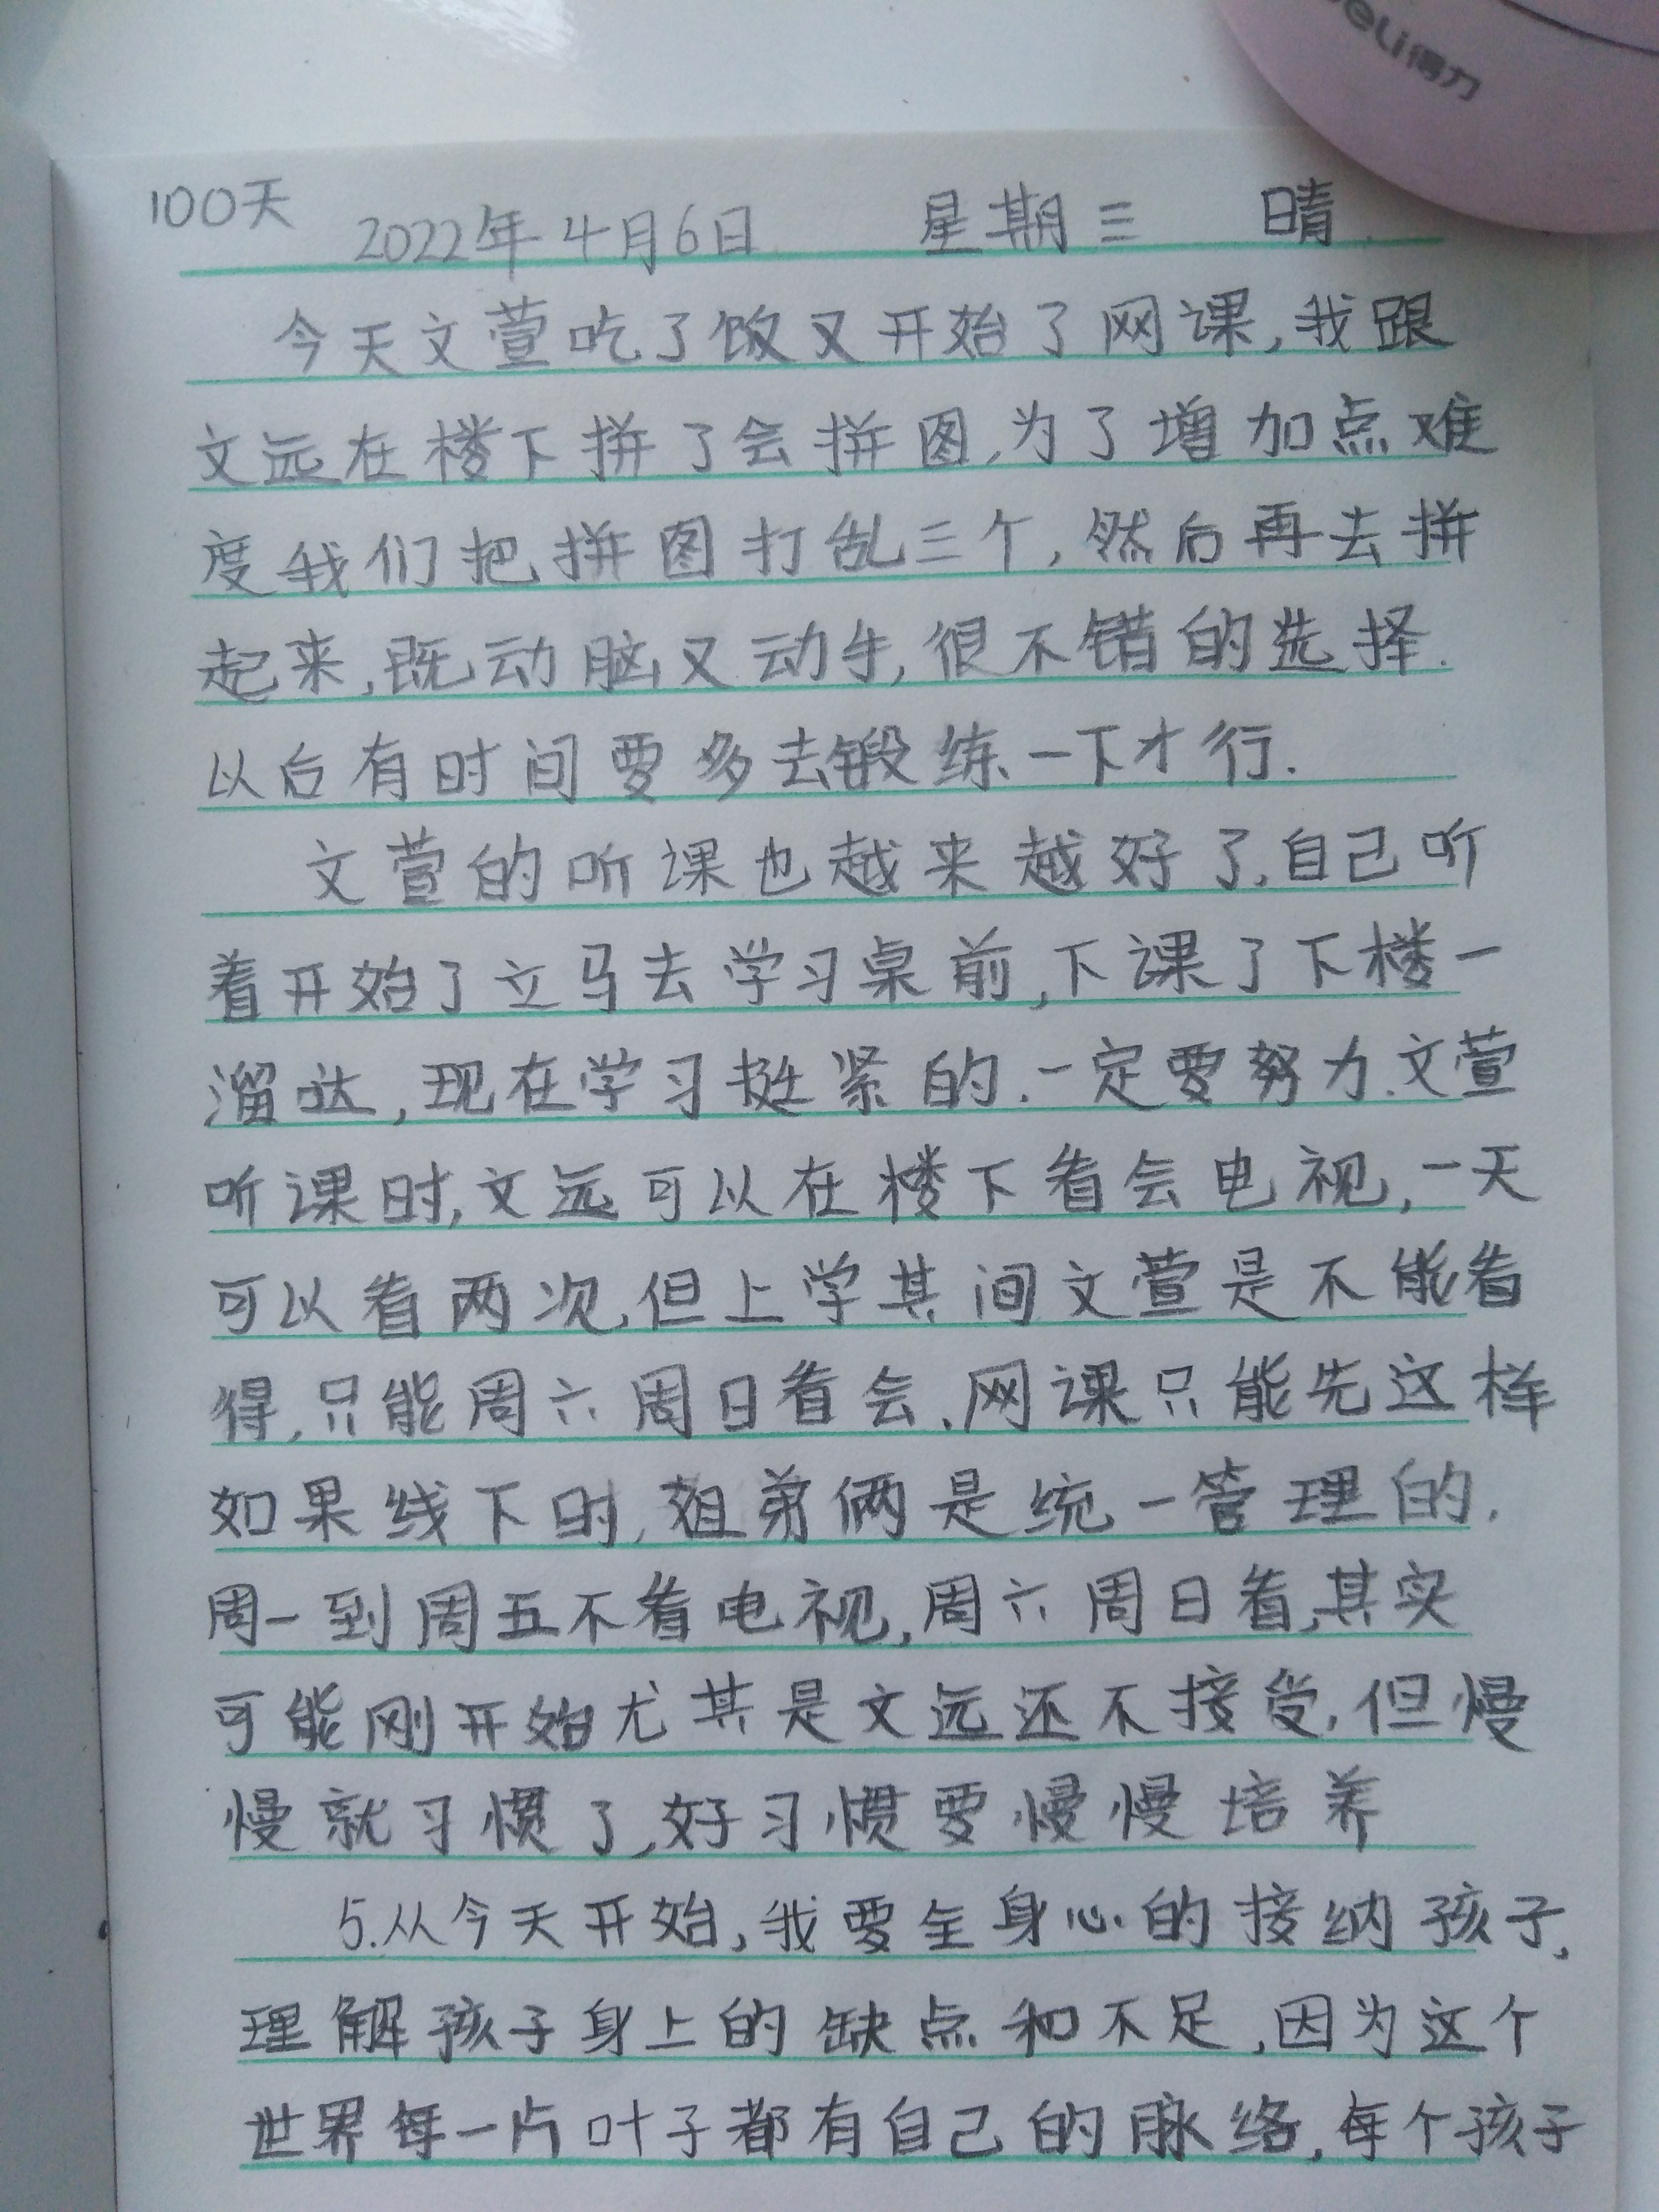 deli得力
100天
2022年4月6日 星期三 晴
今天文萱吃了饭又开始了网课,我跟
文远在楼下拼了会拼图,为了增加点难
度我们把拼图打乱三个,然后再去拼
起来,既动脑又动手,很不错的选择.
以后有时间要多去锻练一下才行.
文萱的听课也越来越好了,自己听
着开始了立马去学习桌前,下课了下楼一
溜达,现在学习挺紧的.一定要努力.文萱
听课时,文远可以在楼下看会电视,一天
可以看两次,但上学其间文萱是不能看
得,只能周六周日看会.网课只能先这样
如果线下时,姐弟俩是统一管理的.
周一到周五不看电视,周六周日看,其实
可能刚开始尤其是文远还不接受,但慢
慢就习惯了,好习惯要慢慢培养
5.从今天开始,我要全身心的接纳孩子,
理解孩子身上的缺点和不足,因为这个
世界每一片叶子都有自己的脉络,每个孩子